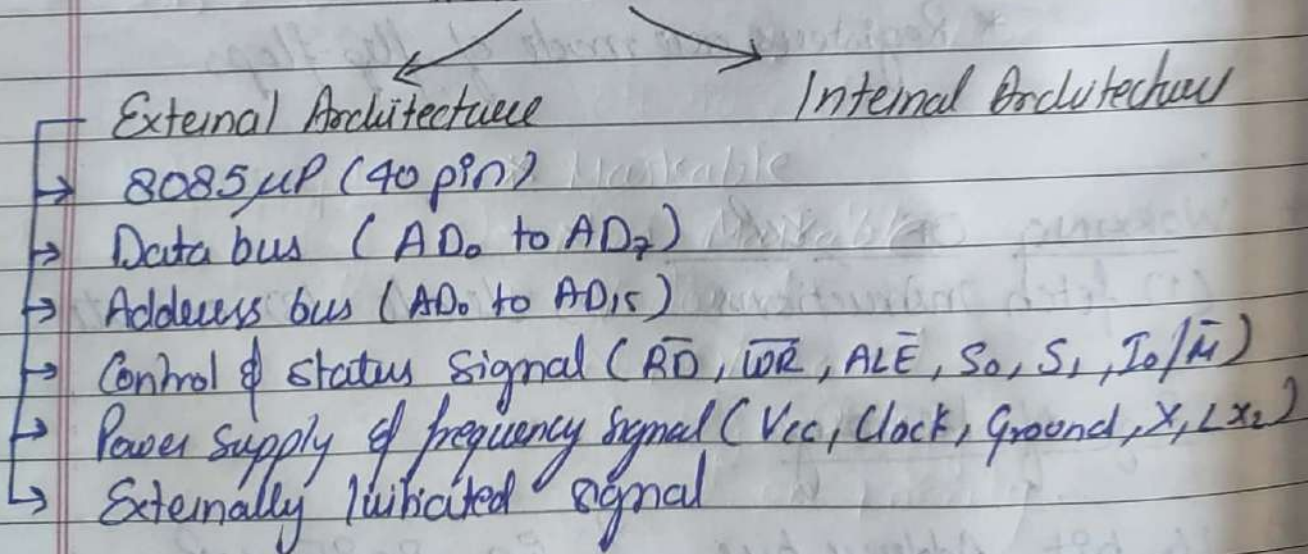 External Architecture
Internal Architecture
8085 μP (40 pin)
Data bus (AD₀ to AD₇)
Address bus (AD₀ to AD₁₅)
Control & status signal (R̅D̅, W̅R̅, ALE̅, S₀, S₁, I₀/M̅)
Power supply & frequency signal (Vcc, Clock, Ground, X, & X₂)
Externally Initiated signal